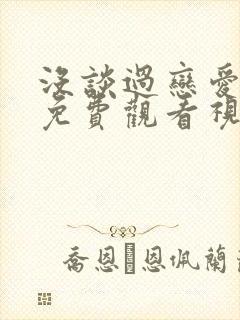 沒談過戀愛
免費觀看視
喬恩恩佩蘭